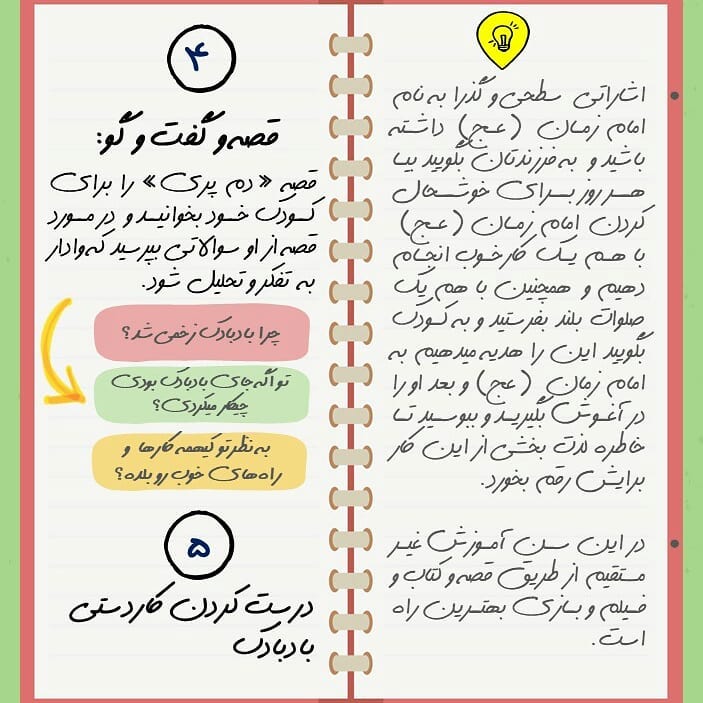 اشاراتی سطحی و گذرا به نام
امام زمان (عج) داشته
باشید و به فرزندتان بگویید بیا
هر روز برای خوشحال
کردن امام زمان (عج)
با هم یک کار خوب انجام
دهیم و همچنین با هم یک
صلوات بلند بفرستید و به کودک
بگویید این را هدیه میدهیم به
امام زمان (عج) و بعد او را
در آغوش بگیرید و ببوسید تا
خاطره لذت بخشی از این کار
برایش رقم بخورد.
در این سن آموزش غیر
مستقیم از طریق قصه و کتاب و
فیلم و بازی بهترین راه
است.
۴
قصه و گفت و گو:
قصه «دم پری» را برای
کودک خود بخوانید و در مورد
قصه از او سوالاتی بپرسید که وادار
به تفکر و تحلیل شود.
چرا بادبادک زخمی شد؟
تو اگه جای بادبادک بودی
چیکار میکردی؟
به نظر تو کی همه کارها و
راه های خوب رو بلده؟
۵
درست کردن کاردستی
بادبادک